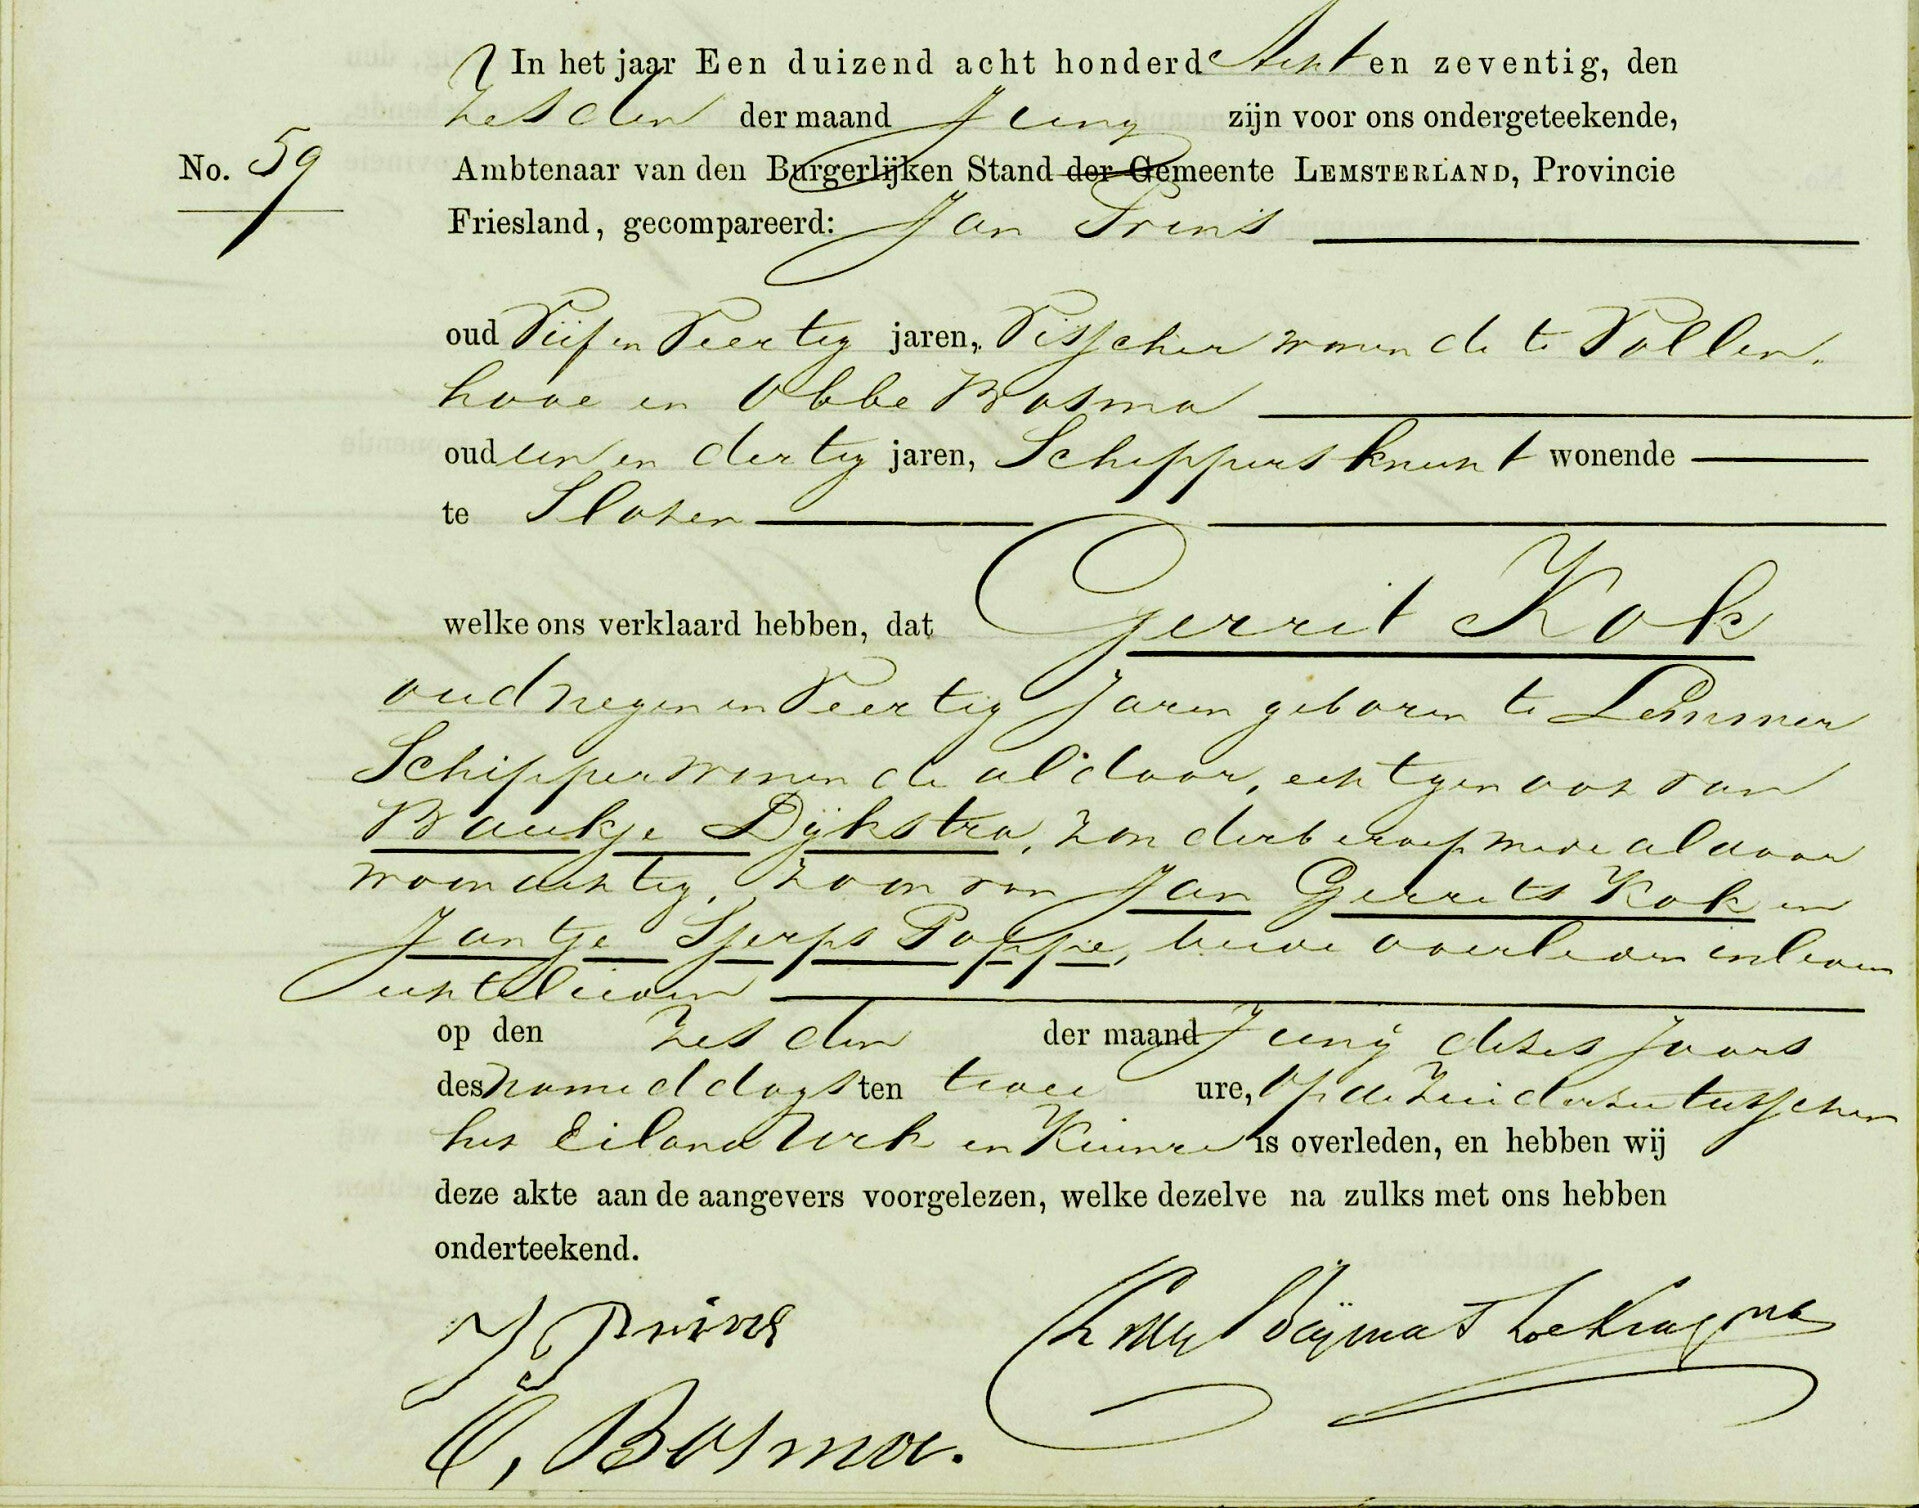 In het jaar Een duizend acht honderd Acht en zeventig, den
zesden der maand Junij zijn voor ons ondergeteekende,
No. 59
Ambtenaar van den Burgerlijken Stand der Gemeente LEMSTERLAND, Provincie
Friesland, gecompareerd: Jan Prins
oud Vijf en Veertig jaren, Visscher wonende te Vollen-
hove en Obbe Bosma
oud een en dertig jaren, Schippersknecht wonende
te Sloten
welke ons verklaard hebben, dat Gerrit Kok
oud negen en Veertig Jaren geboren te Lemmer
Schipper wonende aldaar, echtgenoot van
Baukje Dijkstra, zonder beroep mede aldaar
woonachtig, zoon van Jan Gerrits Kok en
Jantje Sjerps Poppe, beide overleden in leven
echtelieden
op den zesden der maand Junij dezes Jaars
des namiddags ten twee ure, Op de Zuiderzee tusschen
het Eiland Urk en Kuinre is overleden, en hebben wij
deze akte aan de aangevers voorgelezen, welke dezelve na zulks met ons hebben
onderteekend.
J. Prins
O. Bosma.